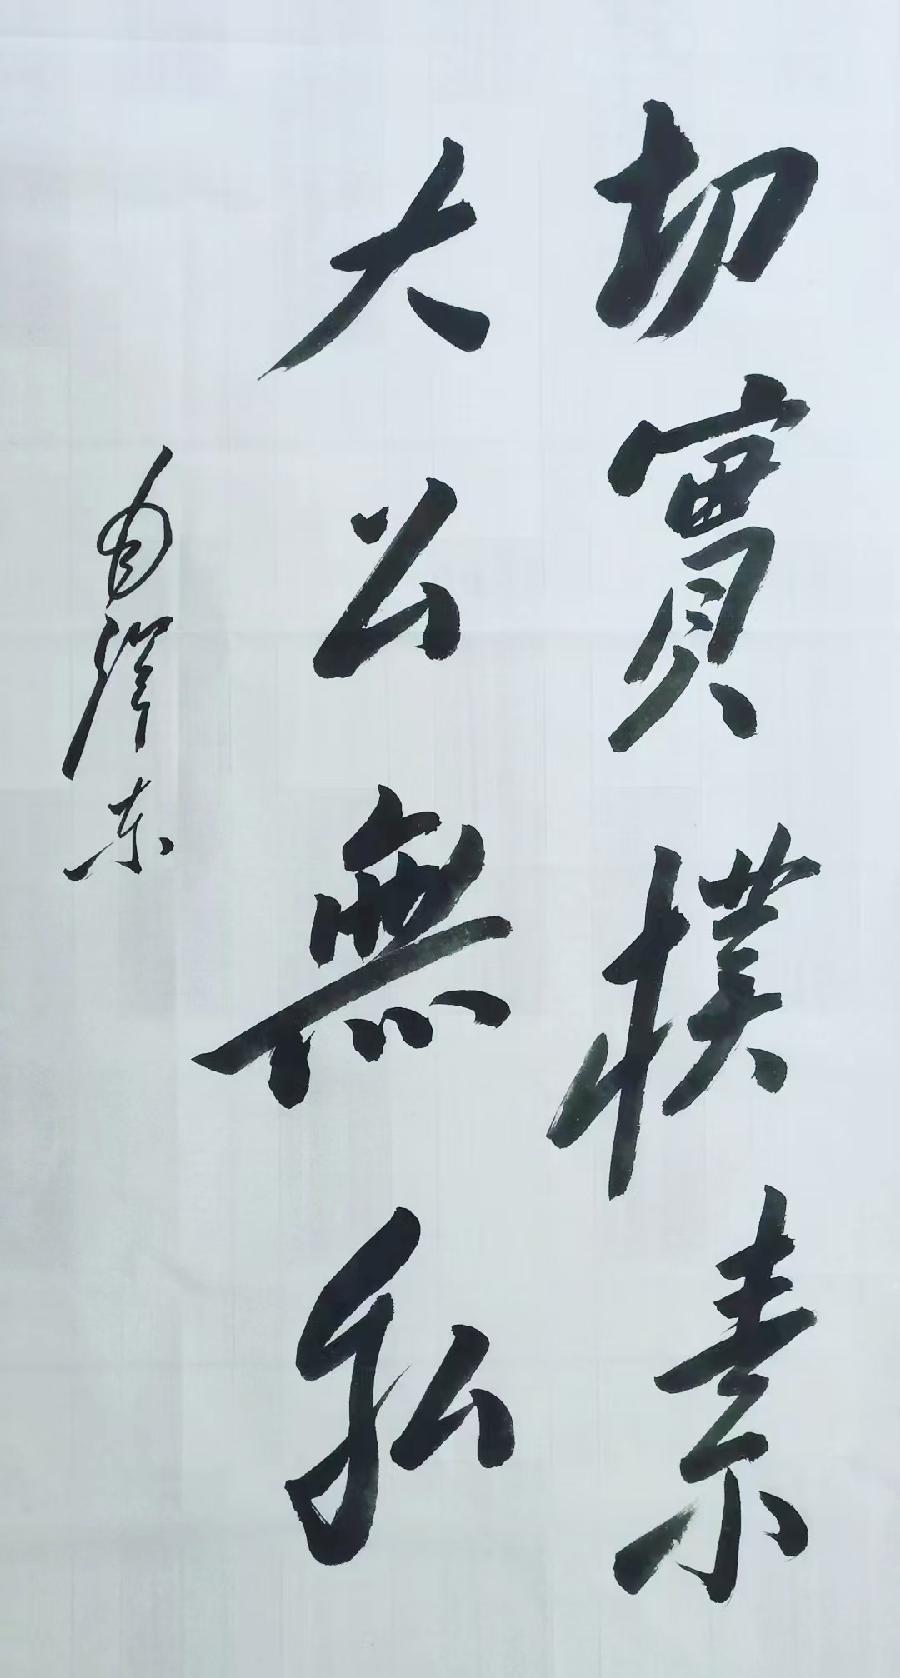 切實樸素
大公無私
毛澤东